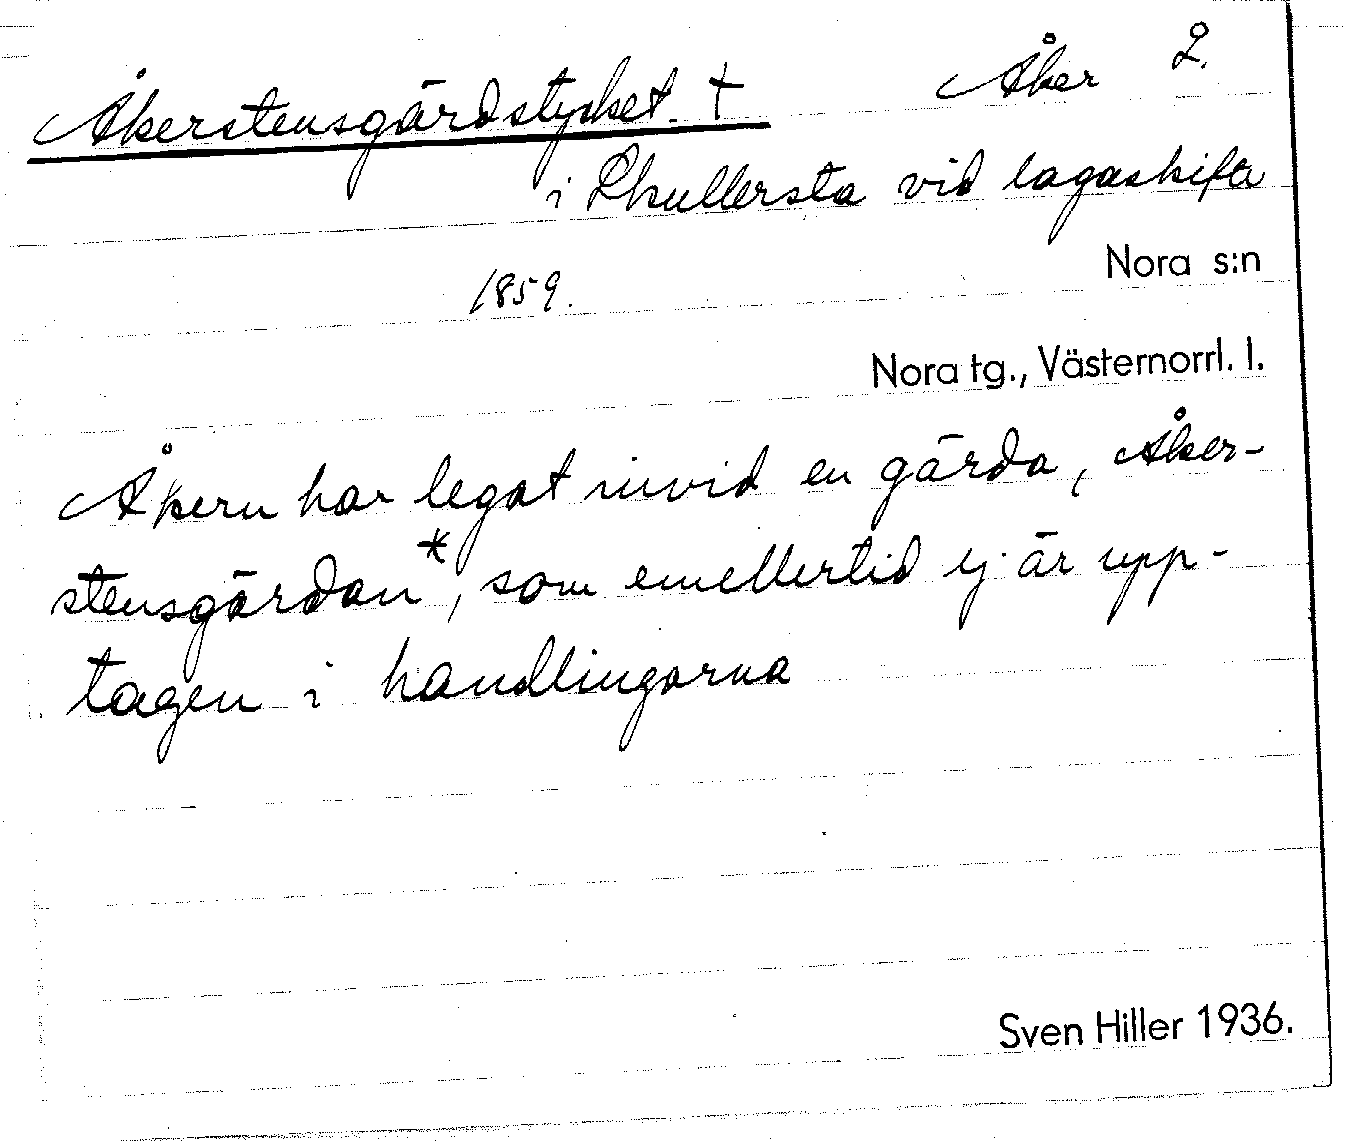 Åkerstensgärdstycket. † Åker 2.
i Skullersta vid lagaskifte
1859.
Nora s:n
Nora tg., Västernorrl. l.
Åkern har legat invid en gärda, Åker-
stensgärdan*, som emellertid ej är upp-
tagen i handlingarna
Sven Hiller 1936.